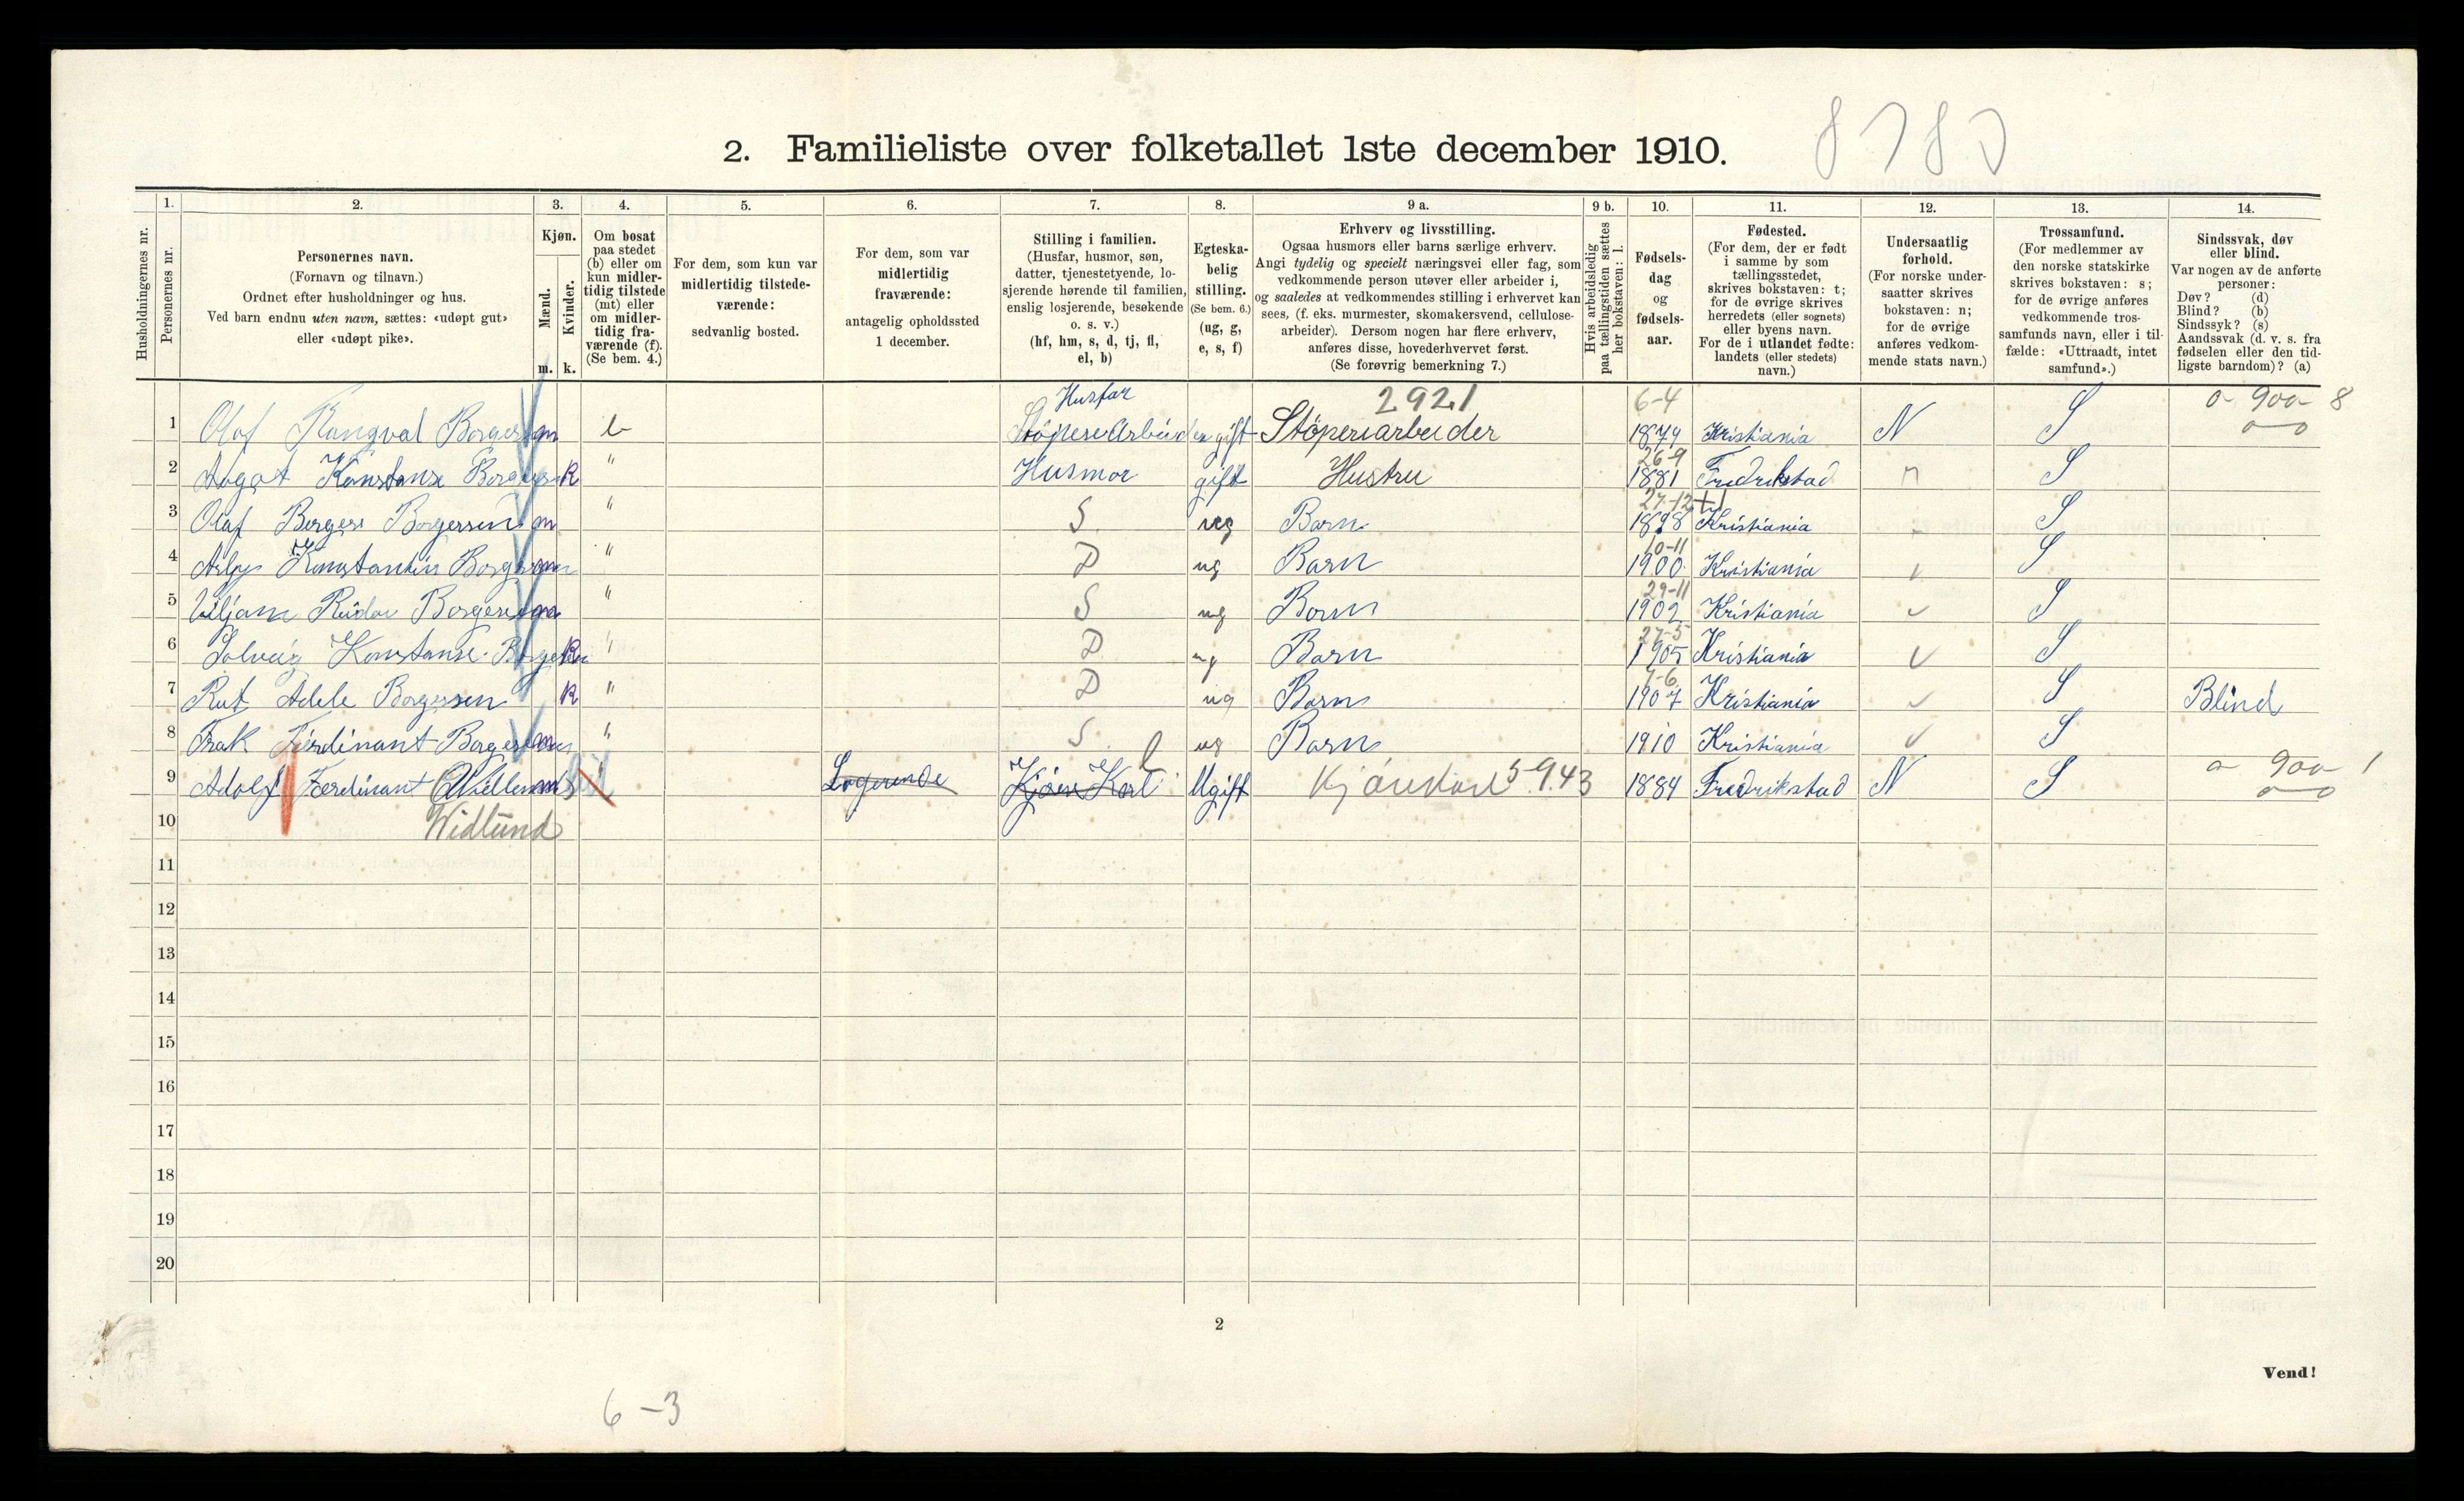 2. Familieliste over folketallet 1ste december 1910.
1. 2. 3. 4. 5. 6. 7. 8. 9 a. 9 b. 10. 11. 12. 13. 14.
Husholdningernes nr.
Personernes nr.
Personernes navn.
(Fornavn og tilnavn.)
Ordnet efter husholdninger og hus.
Ved barn endnu uten navn, sættes: «udøpt gut»
eller «udøpt pike».
Kjøn.
Mænd.
Kvinder.
m. k.
Om bosat
paa stedet
(b) eller om
kun midler-
tidig tilstede
(mt) eller
om midler-
tidig fra-
værende (f).
(Se bem. 4.)
For dem, som kun var
midlertidig tilstede-
værende:
sedvanlig bosted.
For dem, som var
midlertidig
fraværende:
antagelig opholdssted
1 december.
Stilling i familien.
(Husfar, husmor, søn,
datter, tjenestetyende, lo-
sjerende hørende til familien,
enslig losjerende, besøkende
o. s. v.)
(hf, hm, s, d, tj, fl,
el, b)
Egteska-
belig
stilling.
(Se bem. 6.)
(ug, g,
e, s, f)
Erhverv og livsstilling.
Ogsaa husmors eller barns særlige erhverv.
Angi tydelig og specielt næringsvei eller fag, som
vedkommende person utøver eller arbeider i,
og saaledes at vedkommendes stilling i erhvervet kan
sees, (f. eks. murmester, skomakersvend, cellulose-
arbeider). Dersom nogen har flere erhverv,
anføres disse, hovederhvervet først.
(Se forøvrig bemerkning 7.)
Hvis arbeidsledig
paa tællingstiden sættes
her bokstaven: l.
Fødsels-
dag
og
fødsels-
aar.
Fødested.
(For dem, der er født
i samme by som
tællingsstedet,
skrives bokstaven: t;
for de øvrige skrives
herredets (eller sognets)
eller byens navn.
For de i utlandet fødte:
landets (eller stedets)
navn.)
Undersaatlig
forhold.
(For norske under-
saatter skrives
bokstaven: n;
for de øvrige
anføres vedkom-
mende stats navn.)
Trossamfund.
(For medlemmer av
den norske statskirke
skrives bokstaven: s;
for de øvrige anføres
vedkommende tros-
samfunds navn, eller i til-
fælde: «Uttraadt, intet
samfund».)
Sindssvak, døv
eller blind.
Var nogen av de anførte
personer:
Døv? (d)
Blind? (b)
Sindssyk? (s)
Aandssvak (d. v. s. fra
fødselen eller den tid-
ligste barndom)? (a)
Husfar 2921 6-4
1 Olaf Rangval Borgersen m b Støpere Arbeider gift Støperiarbeider 1874 Kristiania N S
26-9
2 Aagot Konstanse Borgersen k " Husmor gift Hustru 1881 Fredrikstad n S
27-12
3 Olaf Borgersen m " S ug Barn 1898 Kristiania S
10-11
4 Konstantin Borgersen m " D ug Barn 1900 Kristiania S
29-11
5 Viljam Reidar Borgersen m " S ug Barn 1902 Kristiania S
27-5
6 Solveig Konstanse Borgersen k " D ug Barn 1905 Kristiania S
7-6
7 Rut Adele Borgersen k " D ug Barn 1907 Kristiania S Blind
8 Frak Ferdinant Borgersen m " S ug Barn 1910 Kristiania S
9 Adolf Ferdinant m Logerende Kjøre Karl l Ugift Kjørekarl 5943 1884 Fredrikstad N S
10 Widlund
11
12
13
14
15
16
17
18
19
20
2
Vend!
6-3